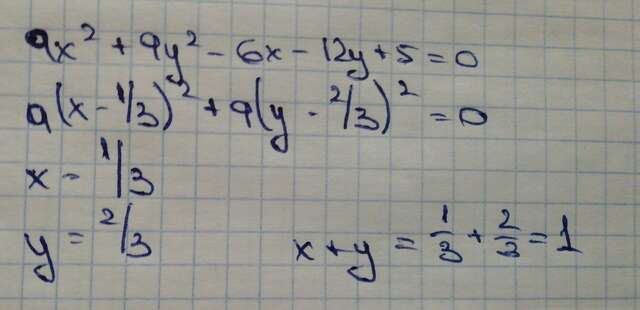 9x² + 9y² - 6x - 12y + 5 = 0
9(x - 1/3)² + 9(y - 2/3)² = 0
x = 1/3
y = 2/3
x + y = 1/3 + 2/3 = 1